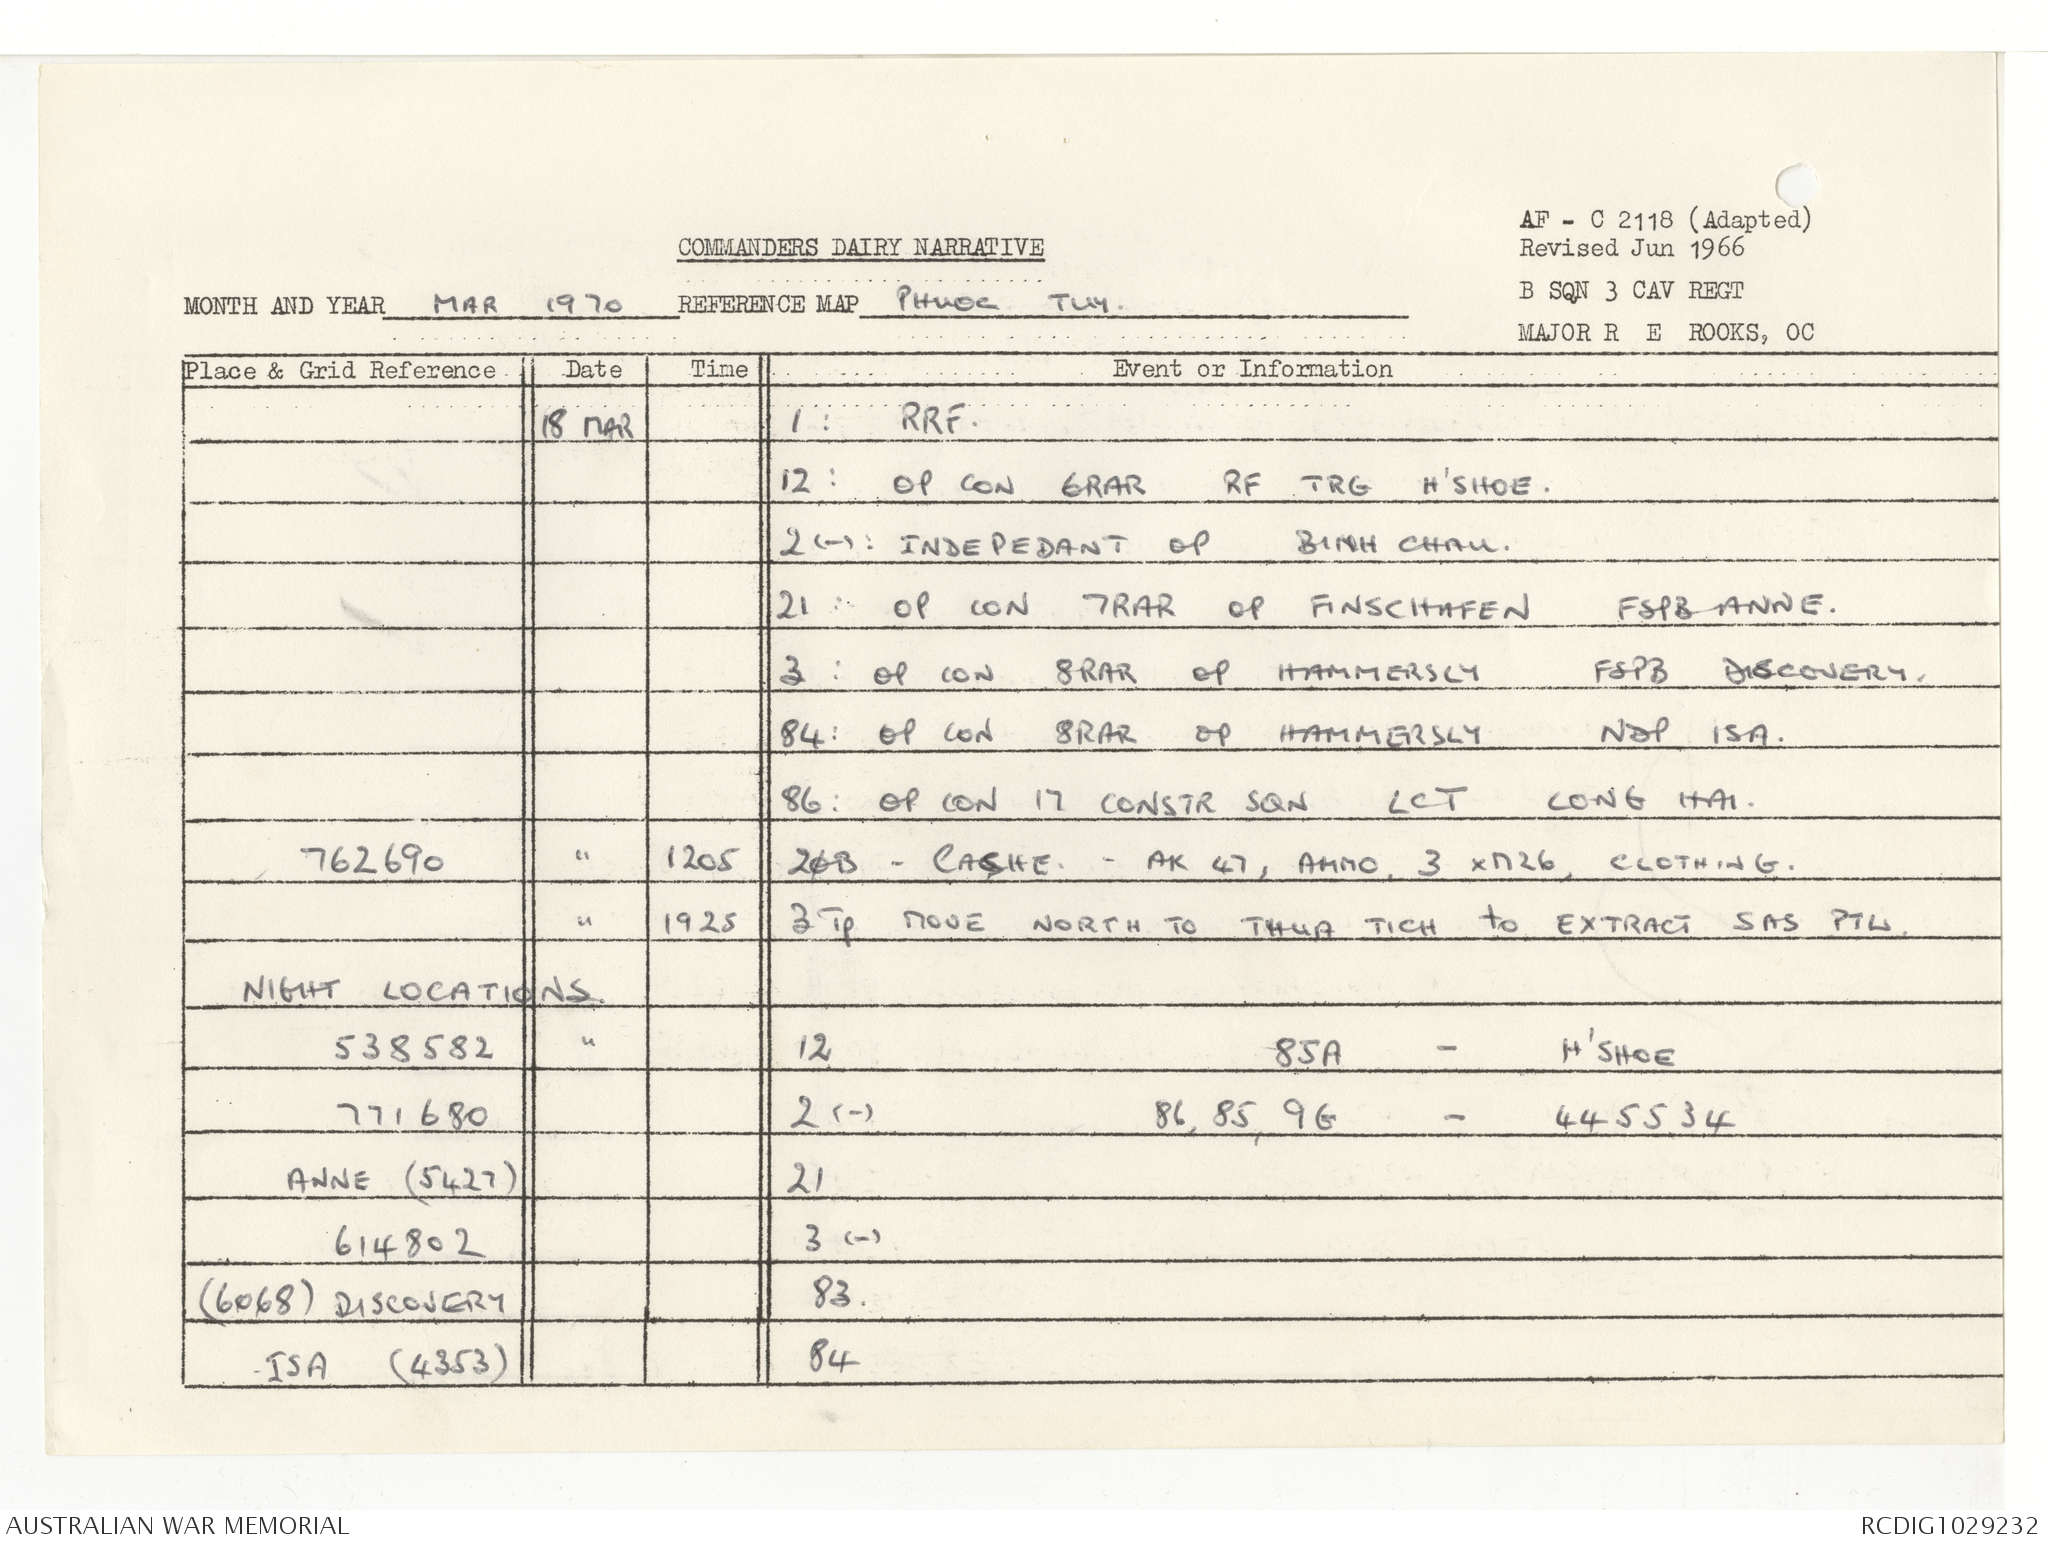 AF - C 2118 (Adapted)
COMMANDERS DAIRY NARRATIVE Revised Jun 1966
B SQN 3 CAV REGT
MONTH AND YEAR MAR 1970 REFERENCE MAP PHUOC TUY.
MAJOR R E ROOKS, OC
Place & Grid Reference Date Time Event or Information
18 MAR 1: RRF.
12: OP CON 6RAR RF TRG H'SHOE.
2(-): INDEPEDANT OP BINH CHAU.
21: OP CON 7RAR OP FINSCHAFEN FSPB ANNE.
3: OP CON 8RAR OP HAMMERSLY FSPB DISCOVERY.
84: OP CON 8RAR OP HAMMERSLY NDP ISA.
86: OP CON 17 CONSTR SQN LCT LONG HAI.
762690 " 1205 - CACHE. - AK 47, AMMO, 3 x M26, CLOTHING.
" 1925 3 Tp MOVE NORTH TO THUA TICH to EXTRACT SAS PTL.
NIGHT LOCATIONS.
538582 " 12 85A - H'SHOE
771680 2(-) 86, 85, 9G - 445534
ANNE (5427) 21
614802 3(-)
(6068) DISCOVERY 83.
ISA (4353) 84
AUSTRALIAN WAR MEMORIAL RCDIG1029232